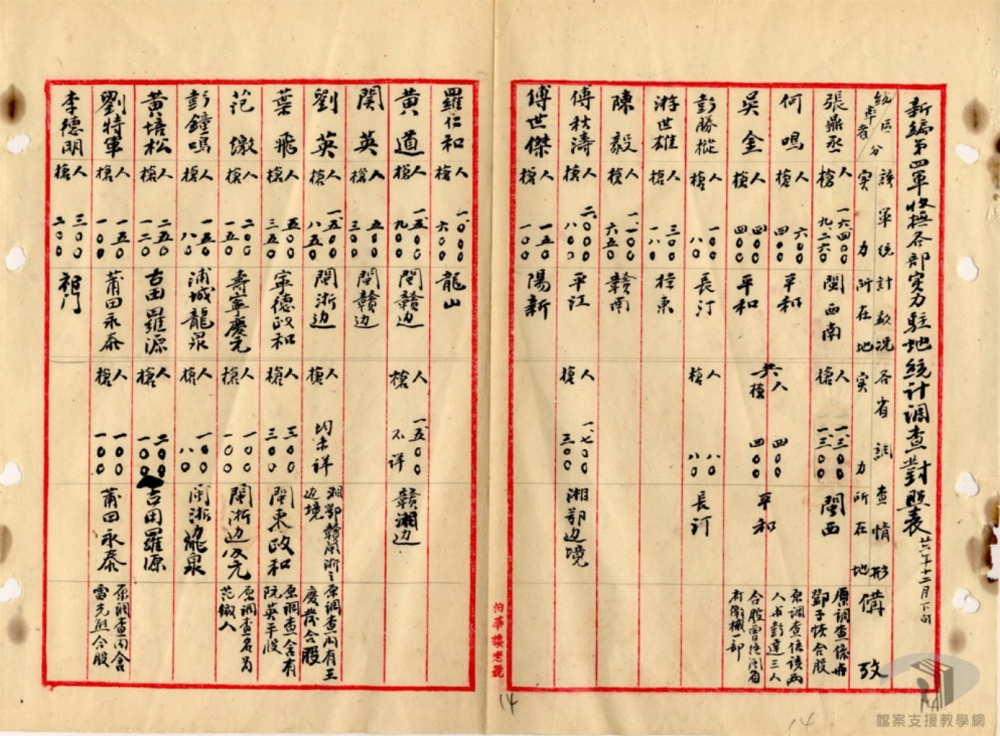 新編第四軍收撫各部實力駐地統計調查對照表 廿六年十二月下旬
區分 統率者 該軍統計敘況 實力 所在地 各省調查情形 實力 所在地 備攷
張鼎丞 人 一六四〇〇 槍 九二六〇 閩西南 人 一三〇〇 槍 一三〇〇 閩西 原調查係與鄧子恢合股
何鳴 人 六〇〇 槍 四〇〇 平和
吳金 人 四〇〇 槍 四〇〇 平和 共 人 四〇〇 槍 四〇〇 平和 原調查係該兩人與彭達三人合股
彭勝樅 人 一〇〇 槍 八〇 長汀 人 八〇 槍 八〇 長汀
游世雄 人 三〇 槍 一八 桂東
陳毅 人 一、一〇〇 槍 六五〇 贛南
傅秋濤 人 二、〇〇〇 槍 八〇〇 平江 人 一、七〇〇 槍 三〇〇 湘鄂边境
傅世傑 人 一五〇 槍 一〇〇 陽新
羅仁和 人 一、〇〇〇 槍 六〇〇 龍山
黃道 人 一、五〇〇 槍 九〇〇 閩贛边 人 一、五〇〇 槍 不詳 贛湘边
関英 人 五〇〇 槍 三〇〇 閩贛边
劉英 人 一、五〇〇 槍 八五〇 閩浙边 人 槍 均未詳 湘鄂贛閩浙之边境 原調查內有王慶發合股
葉飛 人 五〇〇 槍 三五〇 寧德政和 人 三〇〇 槍 三〇〇 閩東政和 原調查含有阮英平股
范繳 人 二〇〇 槍 一五〇 壽寧慶元 人 一〇〇 槍 一〇〇 閩浙边慶元 原調查名為范繳人
彭鐘鳴 人 一五〇 槍 八〇 浦城龍泉 人 一〇〇 槍 八〇 閩浙边龍泉
黃培松 人 一五〇 槍 一二〇 古田羅源 人 二〇〇 槍 一〇〇 古田羅源
劉特軍 人 一五〇 槍 一〇〇 莆田永泰 人 一〇〇 槍 一〇〇 莆田永泰 原調查內含雷光熙合股
李德明 人 三〇〇 槍 二〇〇 祁门
14
14
檔案支援教學網